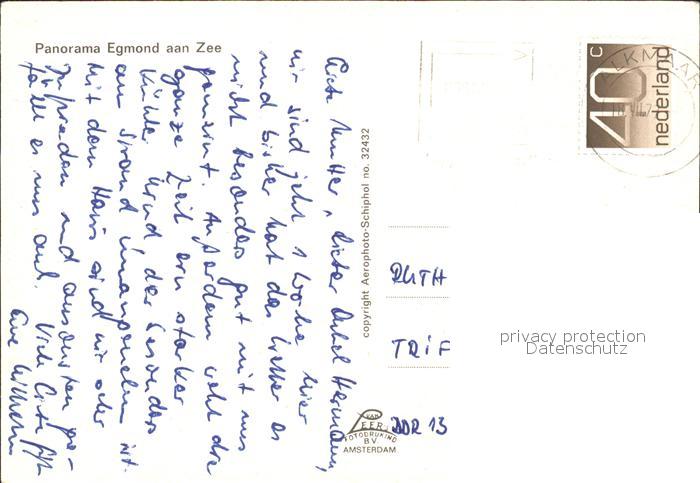 Panorama Egmond aan Zee
Liebe Mutter, lieber Onkel Hermann,
wir sind jetzt 1 Woche hier
und bisher hat das Wetter es
nicht besonders gut mit uns
gemeint. Außerdem weht die
ganze Zeit ein starker
kühler Wind, der besonders
am Strand unangenehm ist.
Mit dem Haus sind wir sehr
zufrieden und ansonsten ge-
fällt es uns auch. Viele Grüße
Eure Wilhelm
copyright Aerophoto-Schiphol no. 32432
C
40
nederland
ALKMAAR
RUTH
TRIF
DDR 13
VAN
LEER
FOTODRUKIND
B V
AMSTERDAM
privacy protection
Datenschutz